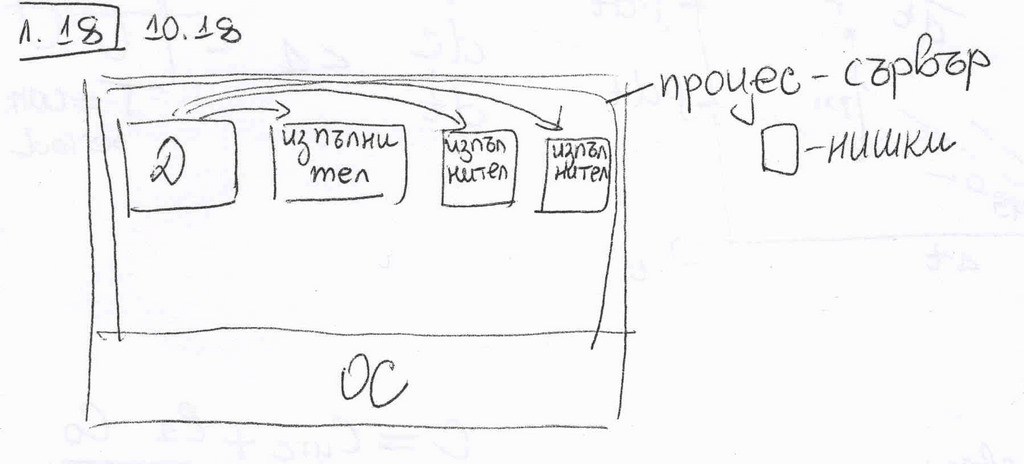 1.18 10.18
процес - сървър
- нишки
Д
изпълни
тел
изпъл
нител
изпъл
нител
ОС